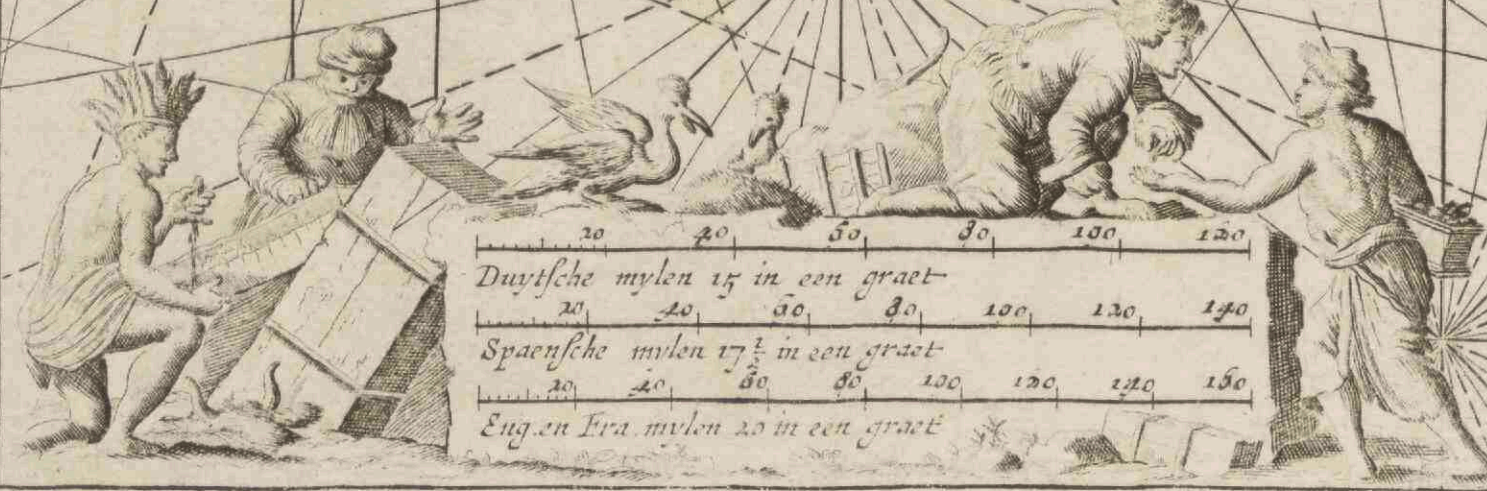 20 40 60 80 100 120
Duytsche mylen 15 in een graet
20 40 60 80 100 120 140
Spaensche mylen 17 1/2 in een graet
20 40 60 80 100 120 140 160
Eng. en Fra. mylen 20 in een graet